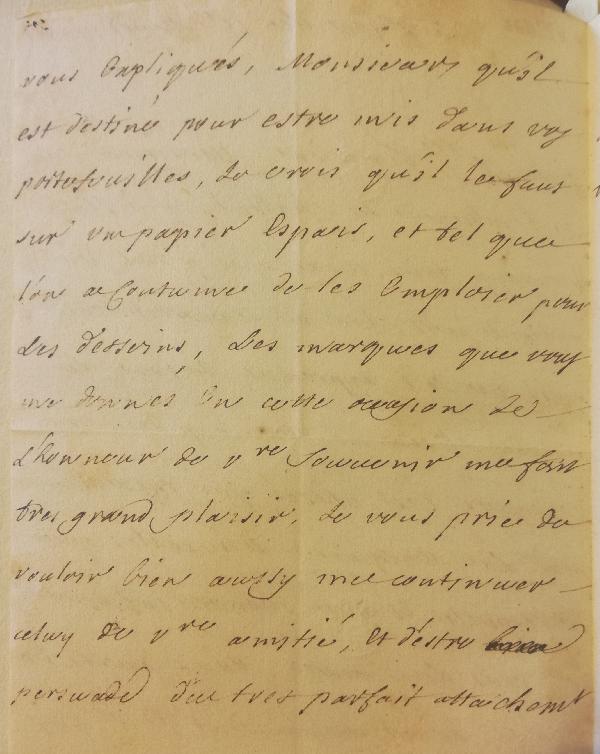 vous Expliqués, Monsieur, qu'il
est destiné pour estre mis dans vos
portefeuilles, Je crois qu'il le faut
sur un papier Espais, et tel que
l'on a Coutume de les Emploier pour
Les desseins, Les marques que vous
me donnés En cette occasion de
L'honneur de vre souvenir me font
tres grand plaisir, Je vous prie de
vouloir bien aussy me continuer
celuy de vre amitié, Et d'estre
persuadé du tres parfait attachemt